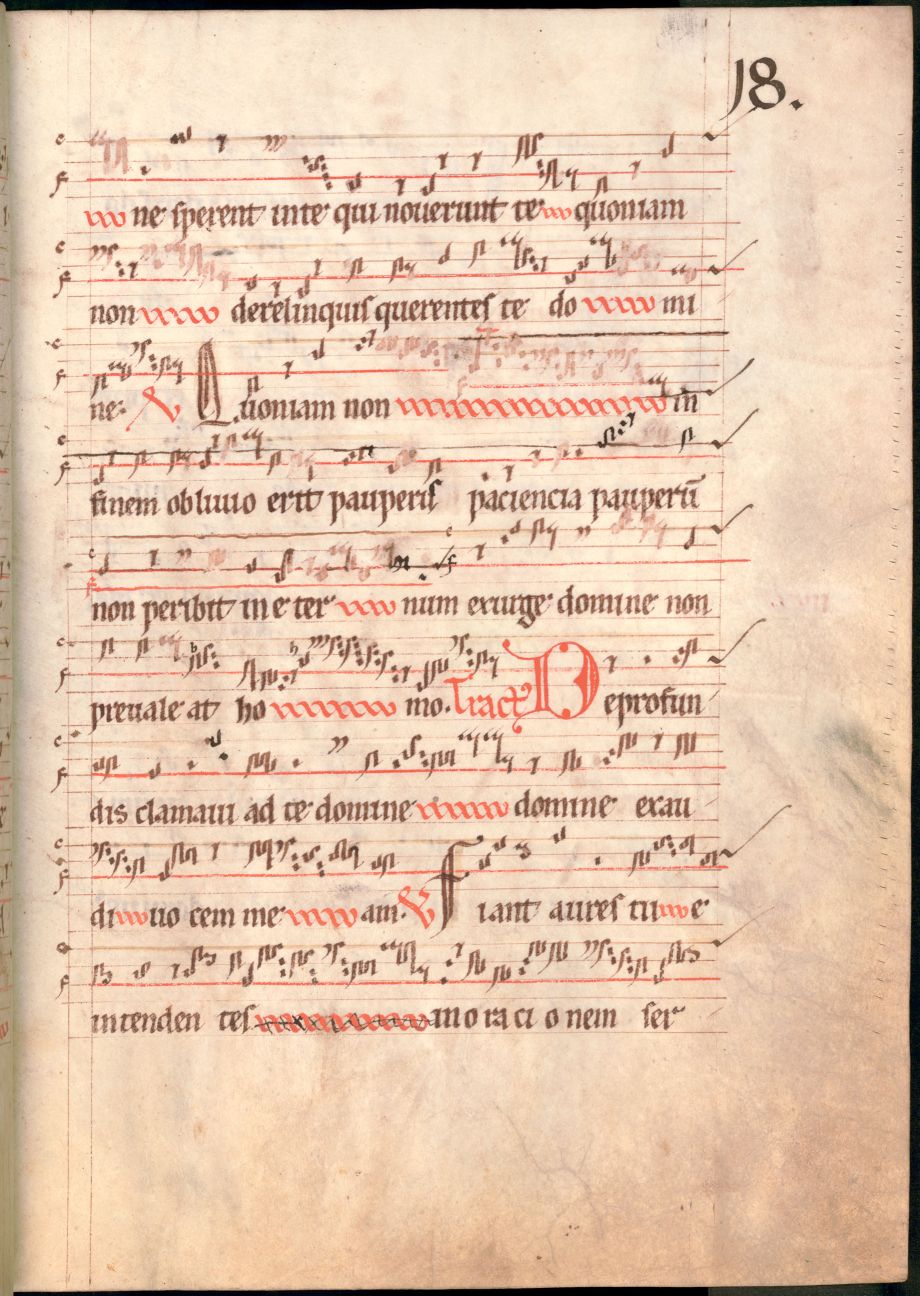 18.
ne sperent in te qui noverunt te quoniam
non derelinquis querentes te do mi
ne. V Quoniam non in
finem oblivio erit pauperis paciencia pauperū
non peribit in e ter num exurge domine non
prevale at ho mo. Tract De profun
dis clamavi ad te domine domine exau
di vo cem me am. V Fiant aures tu e
intenden tes in o ra ci o nem ser